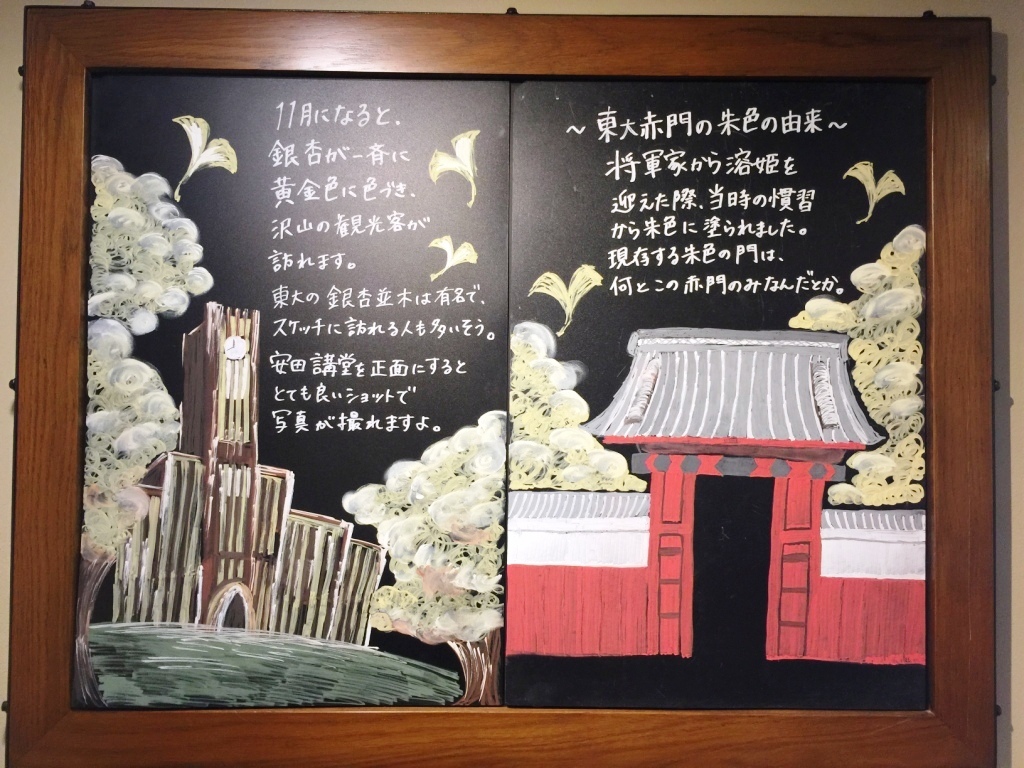 11月になると、
銀杏が一斉に
黄金色に色づき、
沢山の観光客が
訪れます。
東大の銀杏並木は有名で、
スケッチに訪れる人も多いそう。
安田講堂を正面にすると
とても良いショットで
写真が撮れますよ。
～東大赤門の朱色の由来～
将軍家から溶姫を
迎えた際、当時の慣習
から朱色に塗られました。
現存する朱色の門は、
何とこの赤門のみなんだとか。